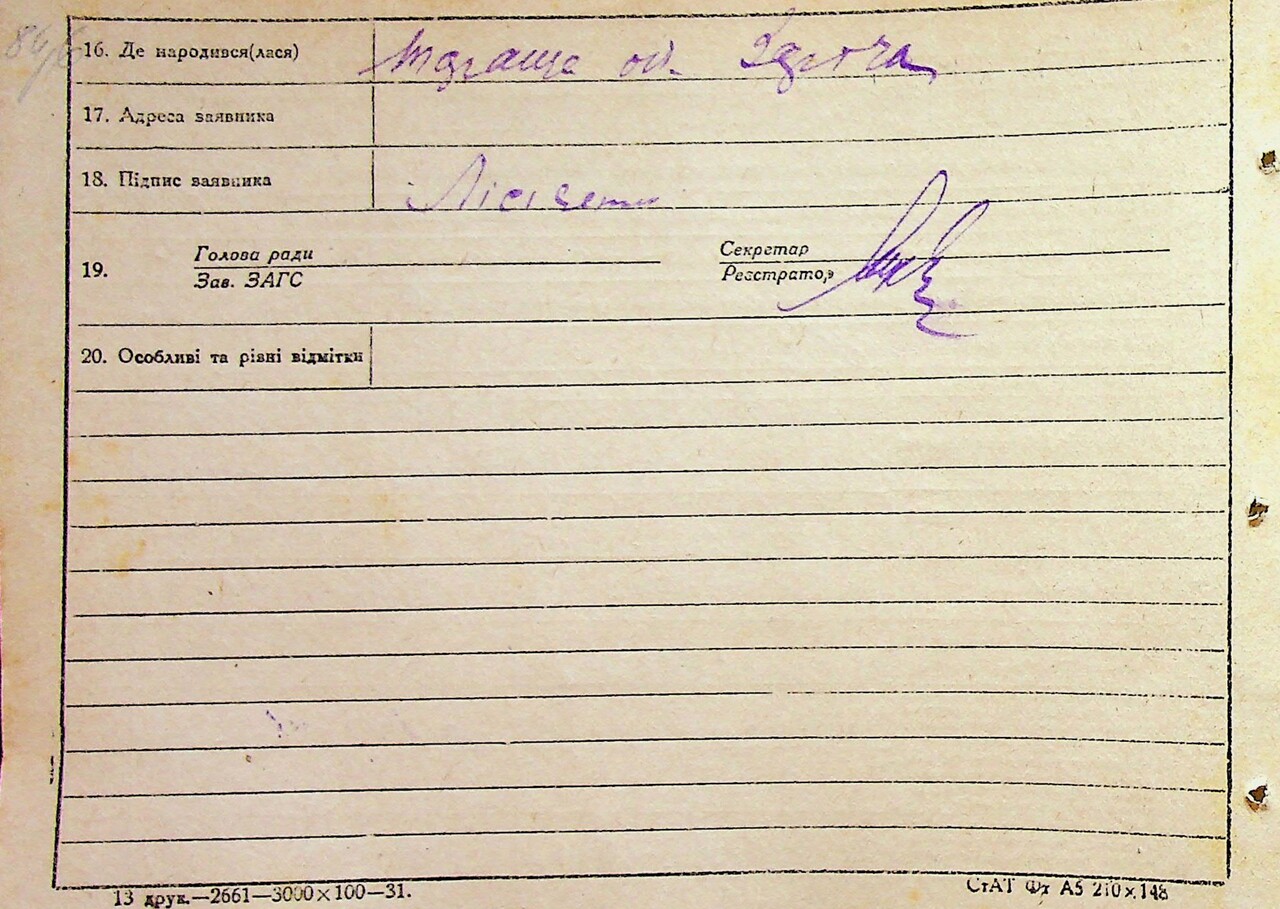 84/6
16. Де народився(лася)
17. Адреса заявника
18. Підпис заявника
19. Голова ради Секретар
Зав. ЗАГС Реєстратор
20. Особливі та рівні відмітки
13 друк.—2661—3000×100—31. СтАТ Фт А5 210×148